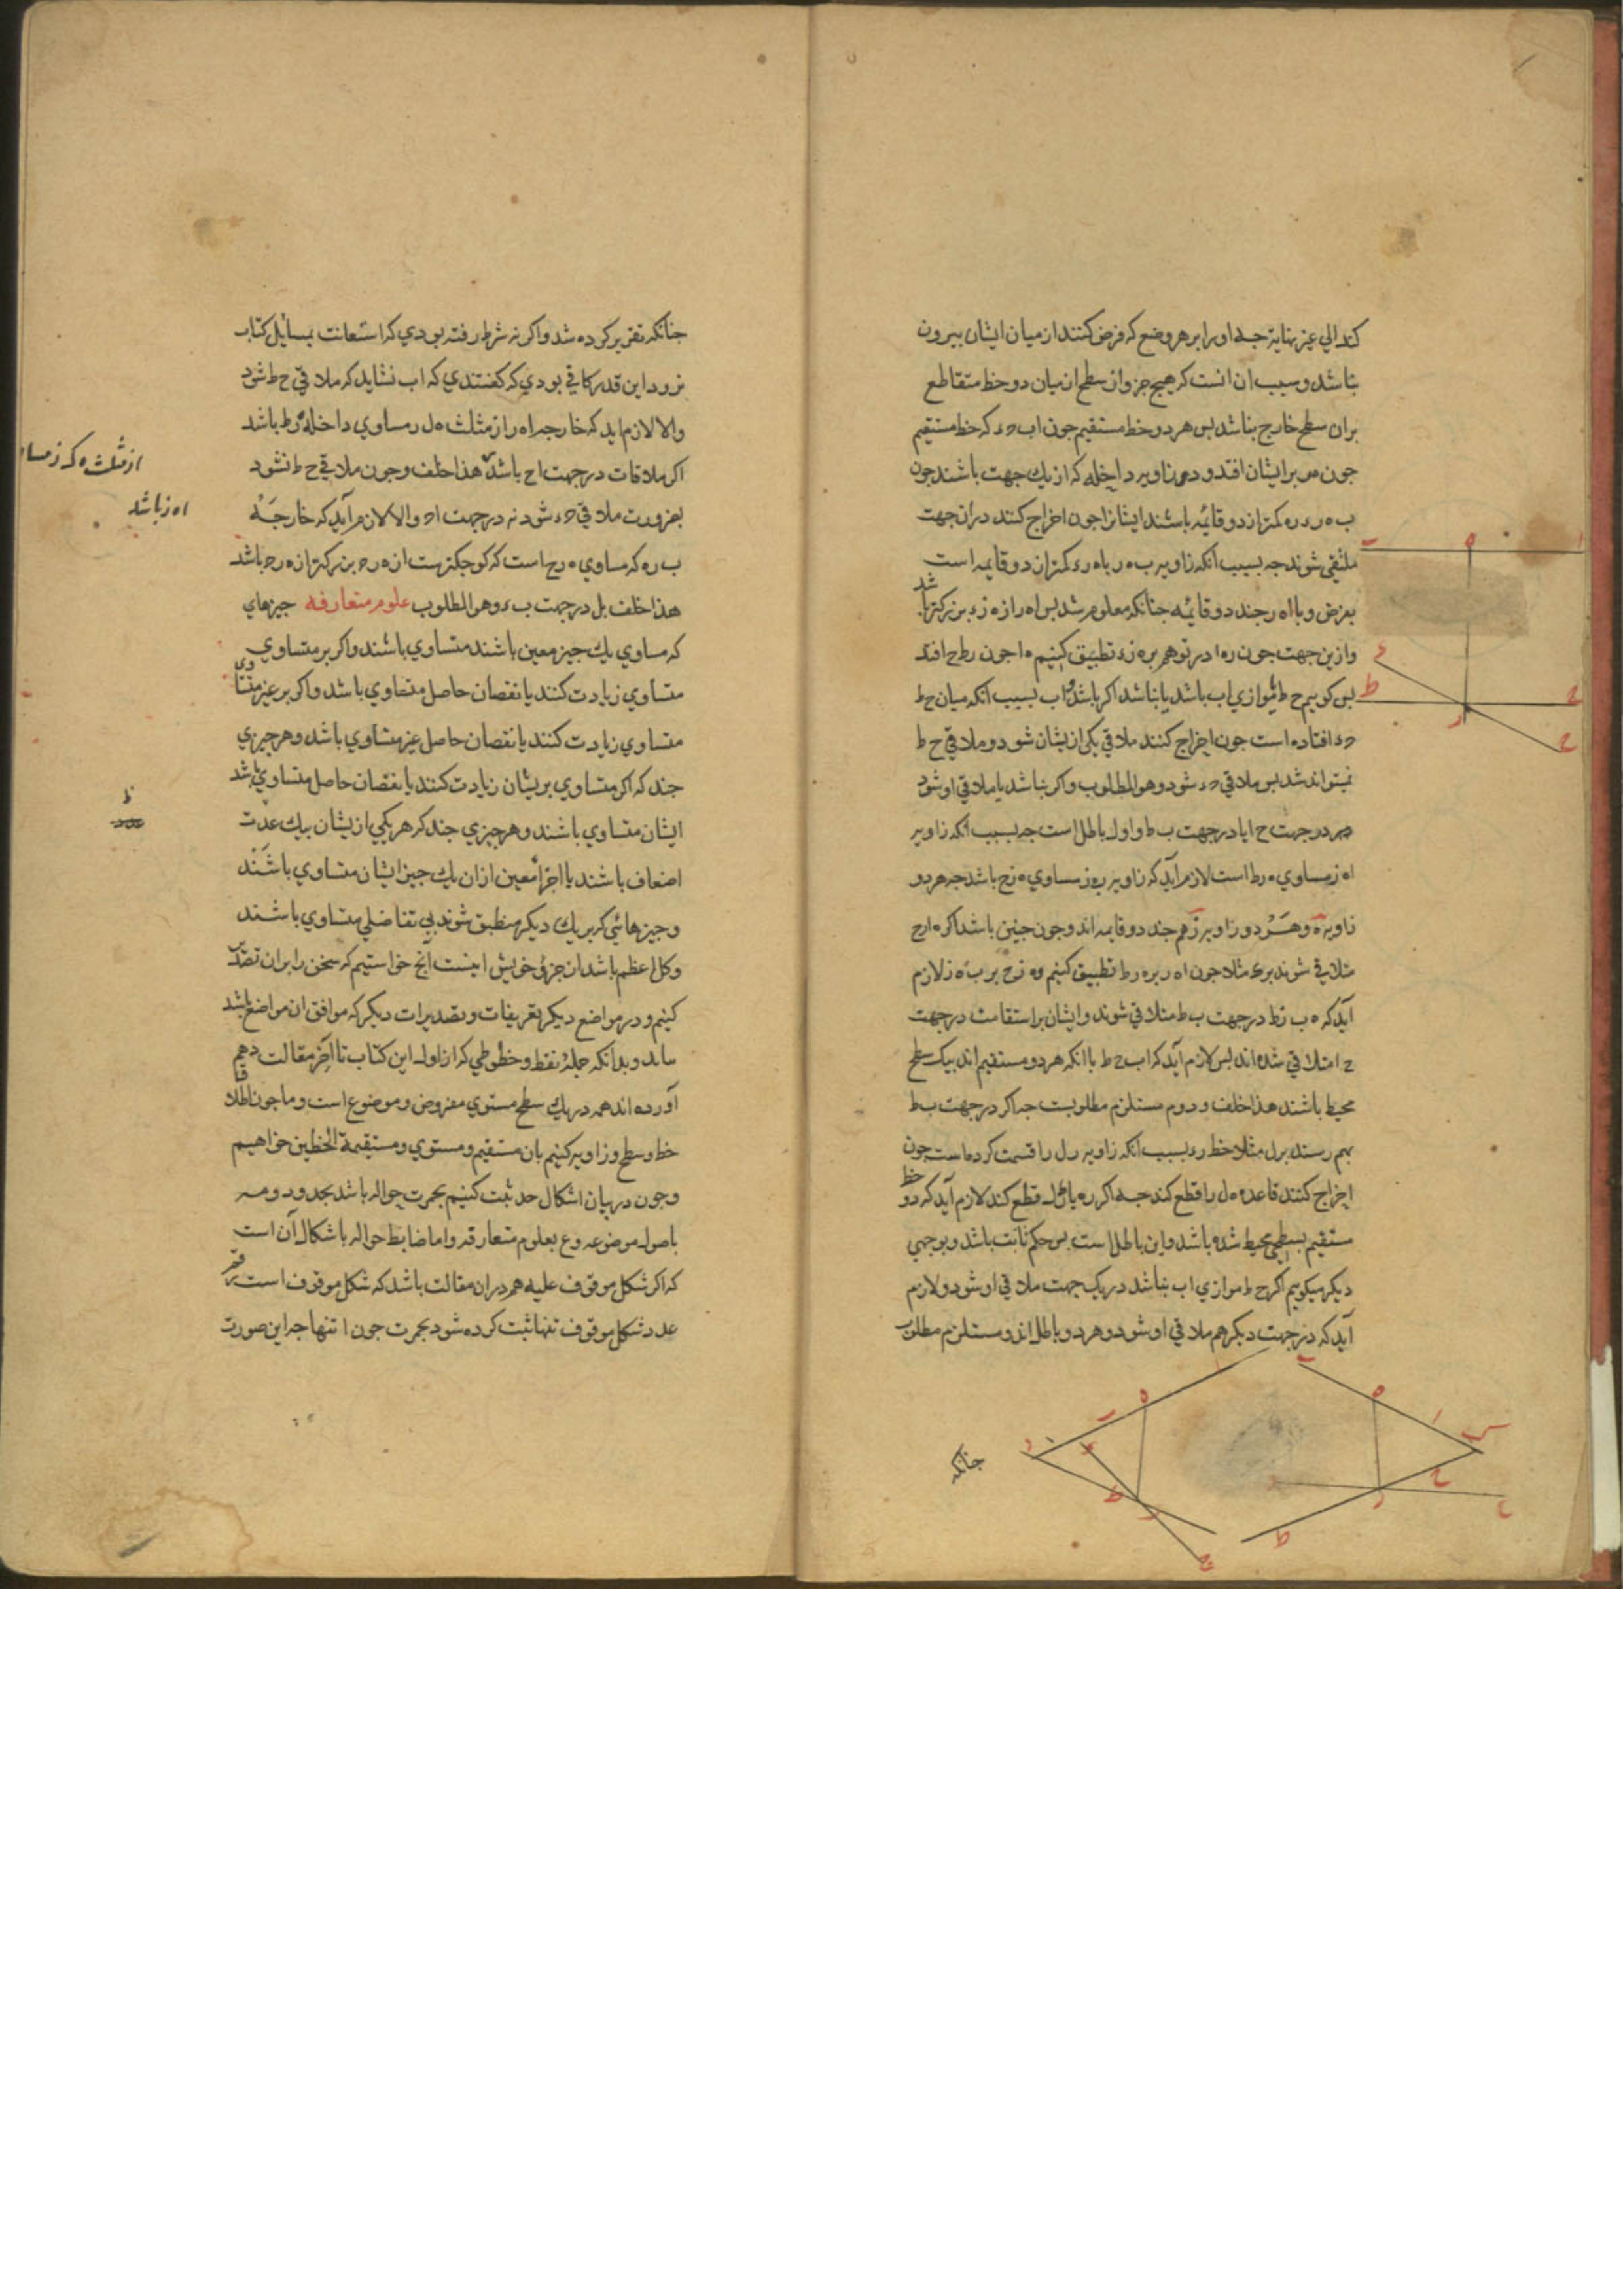 کند الی غیر نهایة جه او را بر هر وضع که فرض کنند از میان ایشان بیرون
نباشد و سبب ان انست که هیچ جزو از سطح از میان دو خط متقاطع
بران سطح خارج نباشد بس هر دو خط مستقیم جون اب ح‍ء که خط مستقیم
جون ه‍ر بر ایشان افتد و دو زاویه داخله که از یك جهت باشند جون
ب ه ر ء ر ه کمتر از دو قائمه باشند ایشانرا جون اخراج کنند در ان جهت
ملتقی شوند جه بسبب آنکه زاویه ب ه ر با ه ر ء کمتر از دو قایمه است
بفرض و با ا ه ر جند دو قائمه جنانکه معلوم شد بس ا ه ر از ه ر ء بزرکتر باشد
و ازین جهت جون ر ه ا در توهم بر ه ر ء تطبیق کنیم ه ا جون ر ط ح افتد
بس کوییم ح ط موازی اب باشد یا نباشد اکر باشد و اب بسبب انکه میان ح ط
ح‍ء افتاده است جون اخراج کنند ملاقی یکی ازیشان شود و ملاقی ح ط
نمیتواند شد بس ملاقی ح‍ء شود و هو المطلوب و اکر نباشد یا ملاقی او شود
در جهت ح ا یا در جهت ب ط و اول باطل است جه بسبب انکه زاویه
ا ه ر مساوی ه ر ط است لازم آید که زاویه ب ه ر مساوی ه ر ح باشد جه هر دو
زاویه ه و هر دو زاویه ر هم جند دو قایمه اند و جون جنین باشد اکر ه ا ر ح
متلاقی شوند بر ء مثلا جون ا ه ر بر ه ر ط تطبیق کنیم و ه ر ح بر ب ه ر لازم
آید که ه ب ر ط در جهت ب ط متلاقی شوند و ایشان بر استقامت در جهت
ح ا متلاقی شده اند بس لازم آید که اب ح ط با انکه هر دو مستقیم اند بیك سطح
محیط باشند هذا خلف و دوم مستلزم مطلوبست جه اکر در جهت ب ط
بهم رسند بر ل مثلا خط ر ء بسبب انکه زاویه ه ر ل را قسمت کرده است جون
اخراج کنند قاعده ه ل را قطع کند جه اکر ر ه یا ر ل قطع کند لازم آید که دو خط
مستقیم بسطحی محیط شده باشد و این باطل است بس حکم ثابت باشد و بوجهی
دیکر میکوییم اکر ح ط موازی اب نباشد در یک جهت ملاقی او شود و لازم
آید که در جهت دیکر هم ملاقی او شود و هر دو باطل اند و مستلزم مطلوب
جنانکه
جنانکه تقریر کرده شد و اکر نه شرط رفته بودی که استعانت بمسایل کتاب
نرود این قدر کافی بودی که کفتندی که اب نشاید که ملاقی ح ط شود
والا لازم اید که خارجه ا ه ر از مثلث ه ل ر مساوی داخله ه ر ط باشد
اکر ملاقات در جهت ا ح باشد هذا خلف و جون ملاقی ح ط نشود
بضرورت ملاقی ح‍ء شود نه در جهت ا ح والا لازم آید که خارجه
ب ه ر که مساوی ه ر ح است که کوجکترست از ه ر ح بزرکتر از ه ر ح باشد
هذا خلف بل در جهت ب ء و هو المطلوب علوم متعارفه جیزهای
که مساوی یك جیز معین باشند متساوی باشند و اکر بر متساوی
متساوی زیادت کنند یا نقصان حاصل متساوی باشد و اکر بر غیر متساوی
متساوی زیادت کنند یا نقصان حاصل غیر متساوی باشد و هر جیزی
جند که اکر متساوی بریشان زیادت کنند یا نقصان حاصل متساوی باشد
ایشان متساوی باشند و هر جیزی جند که هر یکی ازیشان بیك عدت
اضعاف باشند یا اجزاء معین از ان یك جیز ایشان متساوی باشند
و جیزهائی که بر یك دیکر منطبق شوند بی تفاضلی متساوی باشند
و کل اعظم باشد از جزؤ خویش اینست آنج خواستیم که سخن را بران تصدیر
کنیم و در مواضع دیکر تعریفات و تصدیرات دیکر که موافق ان مواضع باشد
بیاید و بدانکه جملۀ نقط و خطوطی که از اول این کتاب تا آخر مقالت دهم
آورده اند همه در یك سطح مستوی مفروض و موضوع است و ما جون اطلاق
خط و سطح و زاویه کنیم بان مستقیم و مستوی و مستقیمة الخطین خواهیم
و جون در بیان اشکال حد ثبت کنیم بحمرت حواله باشد بحدود و مه
باصول موضوعه و ع بعلوم متعارفه و اما ضابط حواله باشکال آن است
که اکر شکل موقوف علیه هم دران مقالت باشد که شکل موقوف است رقم
عدد شکل موقوف تنها ثبت کرده شود بحمرت جون ا تنها جه این صورت
از مثلث ه ک ر مساو
ا ه ر باشد